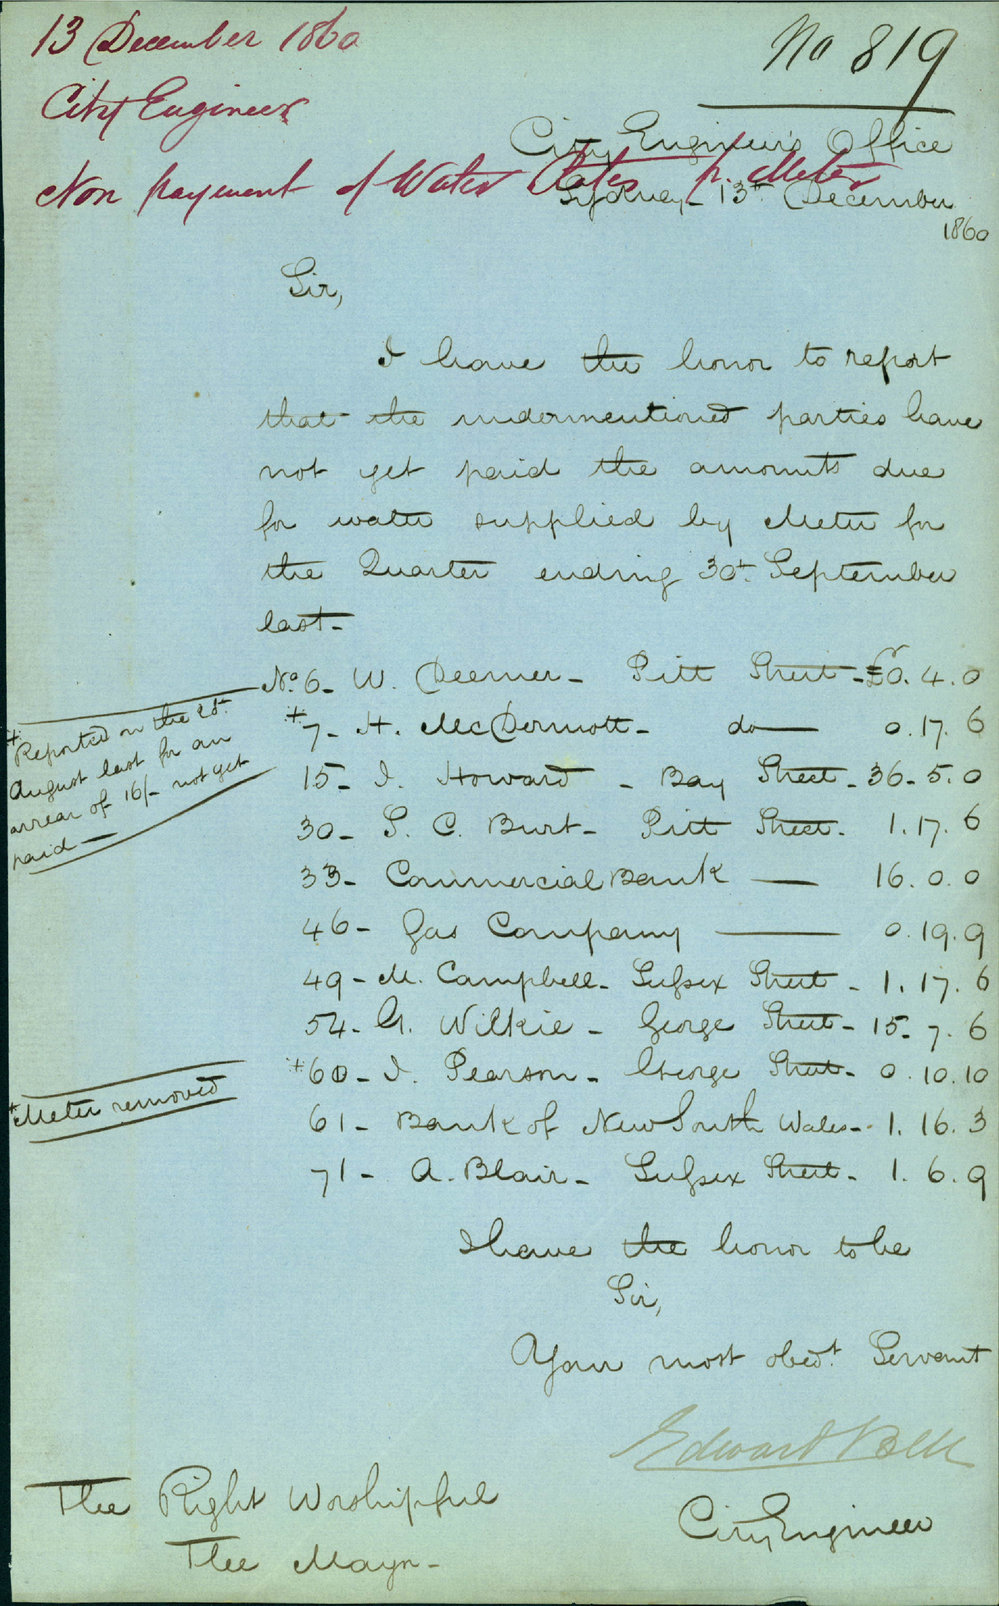 13 December 1860
No 819
City Engineer
City Engineer's Office
Non payment of Water Rates p. Meter
Sydney - 13th December
1860
Sir,
I have the honor to report
that the undermentioned parties have
not yet paid the amounts due
for water supplied by Meter for
the Quarter ending 30th September
last -
No 6 - W. Deemer - Pitt Street - £0. 4. 0
+ 7 - H. McDermott - do — 0. 17. 6
+ Reported on the 28th
August last for an
arrear of 16/- not yet
paid —
15 - J. Howard - Bay Street - 36 - 5. 0
30 - S. C. Burt - Pitt Street - 1. 17. 6
33 - Commercial Bank — 16. 0. 0
46 - Gas Company — 0. 19. 9
49 - M. Campbell - Sussex Street - 1. 17. 6
54 - G. Wilkie - George Street - 15 - 7. 6
+ 60 - J. Pearson - George Street - 0. 10. 10
+ Meter removed
61 - Bank of New South Wales - 1. 16. 3
71 - A. Blair - Sussex Street - 1. 6. 9
I have the honor to be
Sir,
Your most obedt. Servant
Edward Bell
City Engineer
The Right Worshipful
The Mayor -